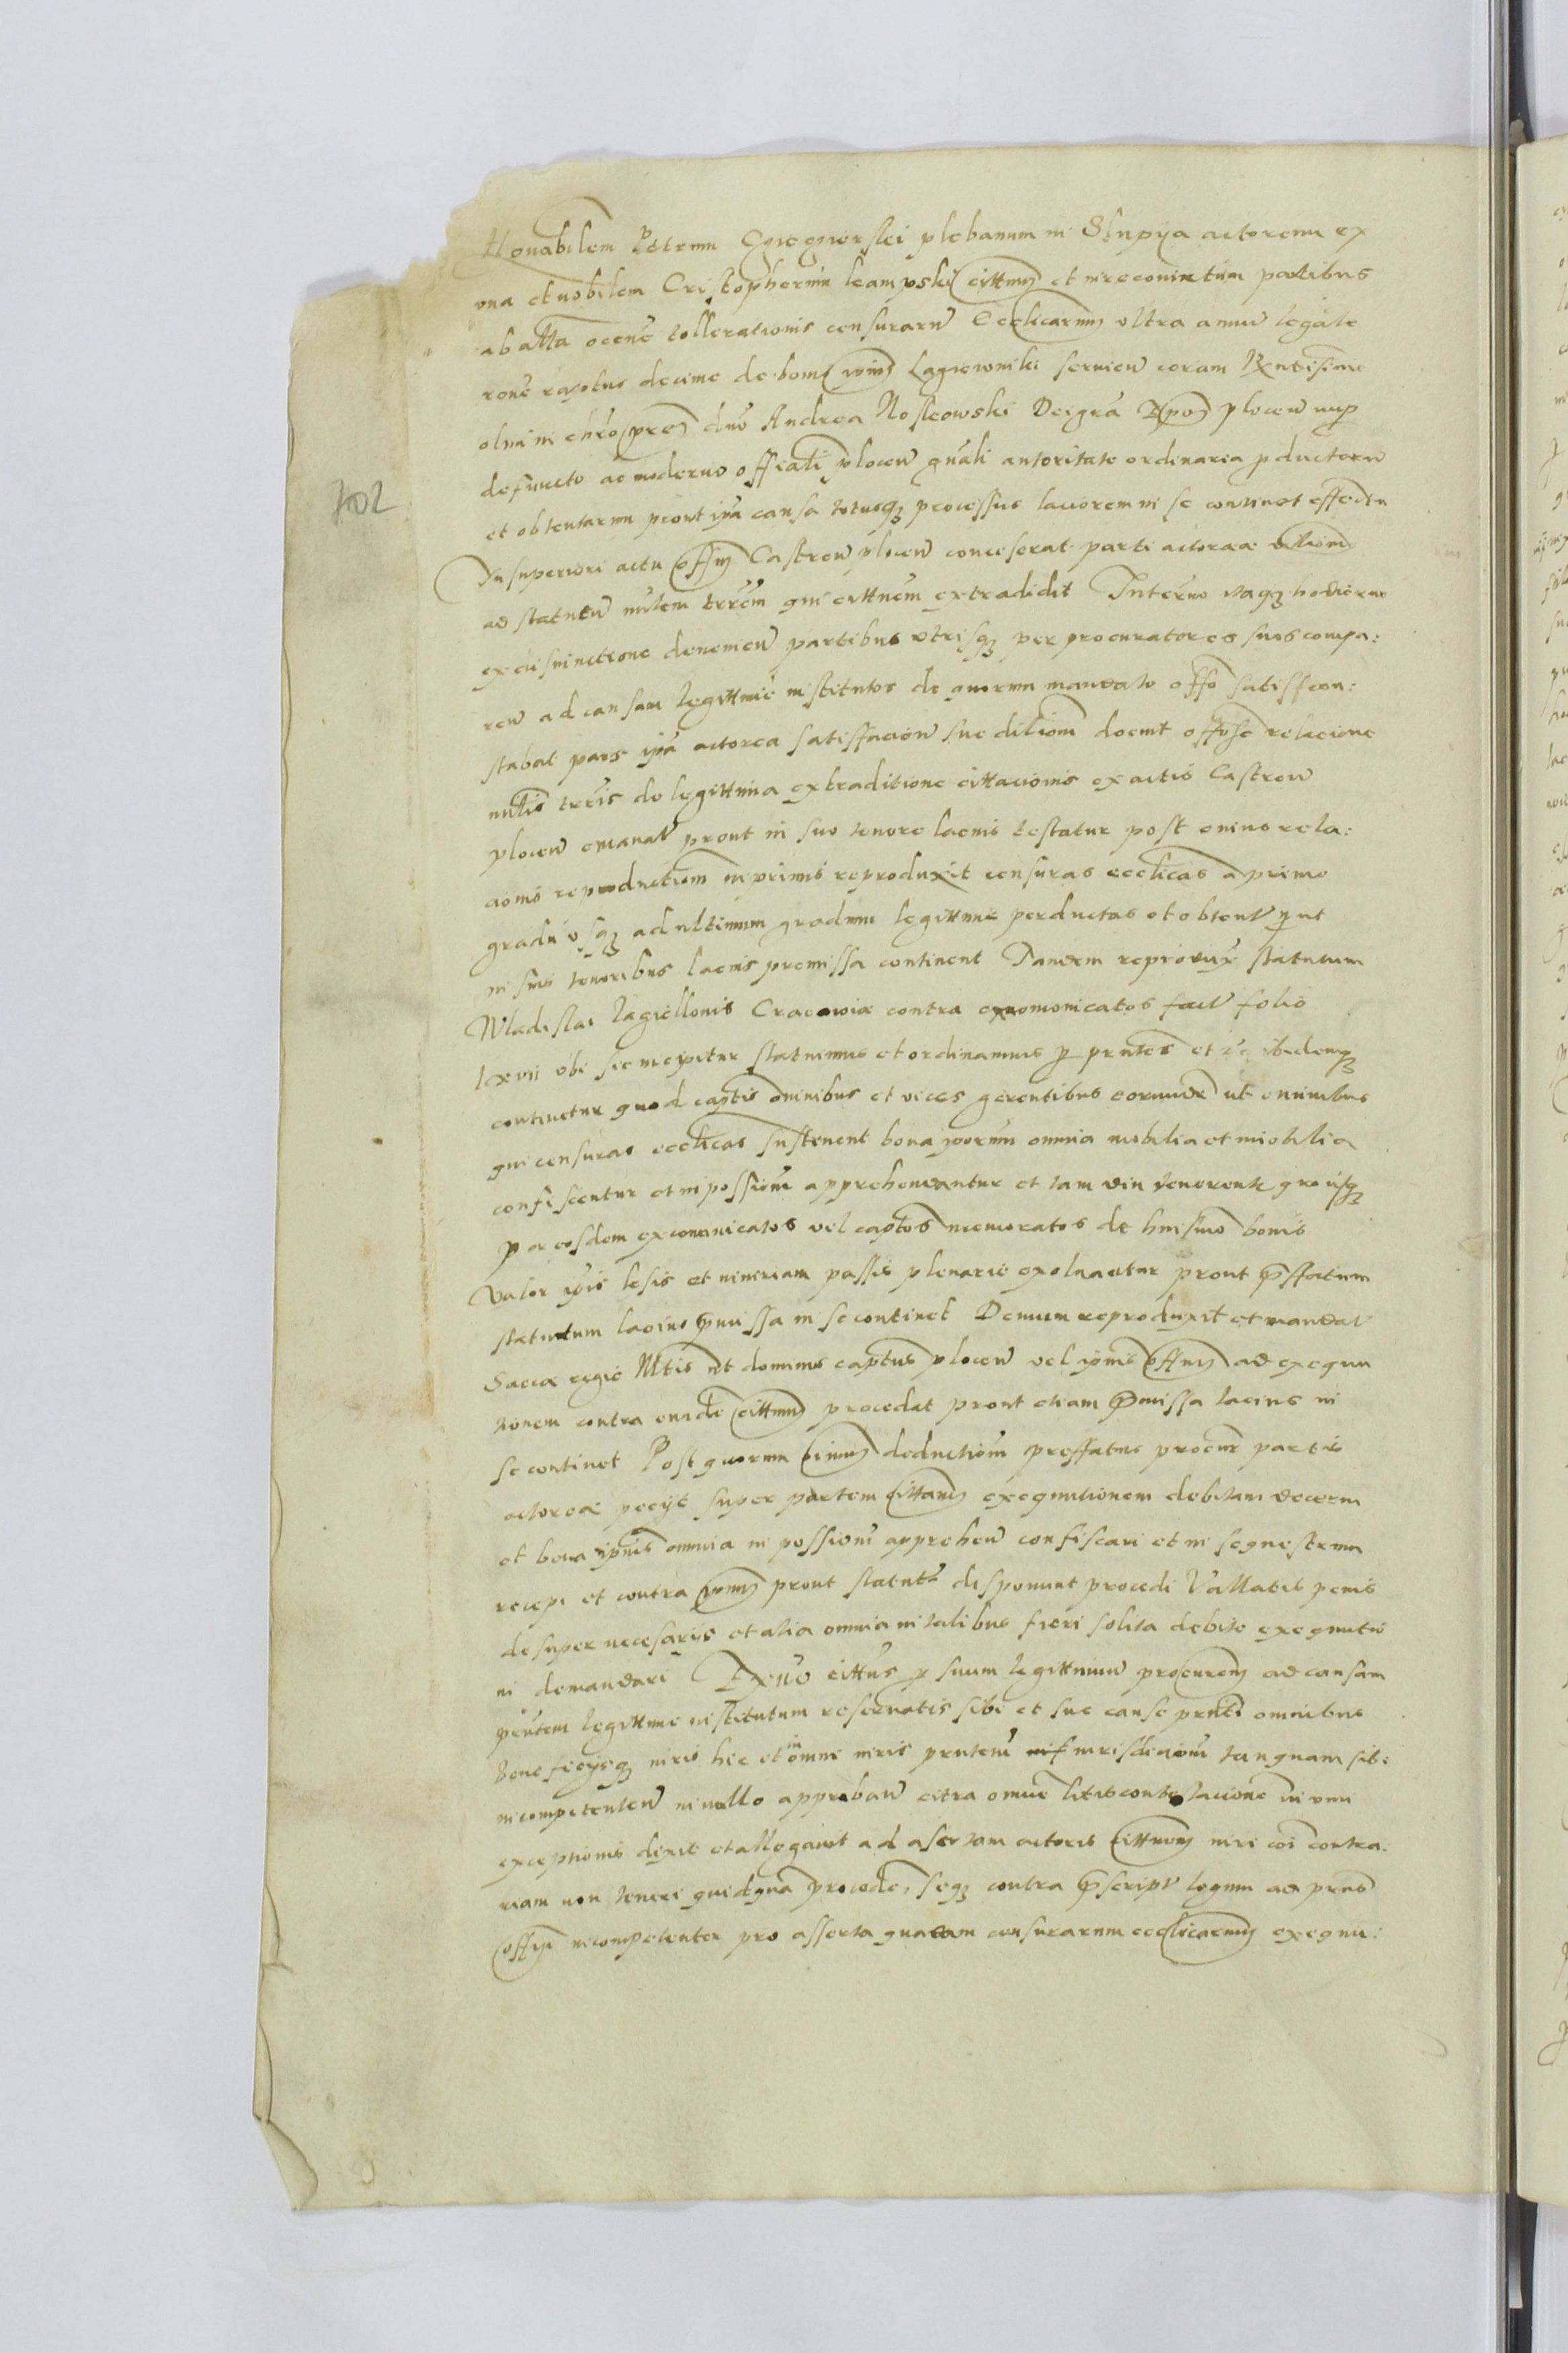 Honabilem Petrum Grzegorski plebanum in Slupya actorem ex
una et nobilem Cristopherum kampski cittum et in reconvictum partibus
ab alta ocene tollerationis censurarum Ecclicarum ultra annum legale
rone raptus decime de bonis Lagiewniki servien coram Rxndissimo
olim in chro pre dno Andrea Noskowski Dei gra Epo plocen nup
defuncto ac moderno offiali plocen gnali autoritate ordinaria pductarum
et obtentarum prout ipa causa totusq processus latiorem in se continet effectu
In superiori actu offy Castren plocen concesserat parti actoree dilionem
ad statuen mlem trrem qui cittnem extradidit Termino itaq hodierno
ex disiunctione deveniens partibus utrisq per procuratores suos compa:
ren ad causam legittime institutos de quorum mandato offo satis con:
stabat pars ipa actorea satisfaciens sue dilioni docuit offose relacione
mlis trris de legittima extraditione cittacionis ex actis Castren
plocen emanat prout in suo tenore lacius testatur post cuius rela:
cionis reproductiom in primis reproduxit censuras ecclicas a primo
gradu usq ad ultimum gradum legittime perductas et obtent put
in suis tenoribus lacius premissa continent Tandem reprodux statutum
Wladislai Jagiellonis Cracowiae contra excomonicatos fact folio
lxvii ubi sic incipitur statuimus et ordinamus p pntes et rc ibidemq
continetur quod captis ominibus et vices gerentibus eorundem ut omnibus
qui censuras ecclicas sustinent bona ipsorum omnia mobilia et imobilia
confiscentur et in possiom apprehendantur et tam diu teneentur quousq
p a eosdem excommunicatos vel captos memoratos de hmsmo bonis
Valor ipis lesis et iniuriam passis plenarie exolvatur prout prffatum
statutum lacius pmissa in se continet Demum reproduxit et mandat
Sacrae regie Mtis ut dominus captus plocen vel ipius offium ad exequu
tionem contra eunde cittum procedat prout etiam pmissa lacius in
se continet Post quorum omnium deductiom preffatus procur partis
actoree peciit super partem cittam exequutionem debitam decerni
et bona ipius omnia in possiom apprehen confiscari et in sequestrum
recepi et contra ipsum prout statuta disponunt procedi Vallatis penis
desuper necesariis et alia omnia in talibus fieri solita debite exequutio
ni demandari Ex adverso cittus p suum legittimum procurem ad causam
pntem legittime institutum reservatis sibi et sue cause pnti omnibus
beneficiisq iuris hic et in omni iuris pntem iurisdicioni tanquam sibi
incompetentem in nullo approban citra omne litis contestacione in vim
exceptionis dixit et allegavit ad asertam actoris cittnem iuri coi contra:
riam non teneri quidqua procede, seq contra pscript legum ad pns
offiu incompetenter pro asserta quadam censurarum ecclicarum exequu: